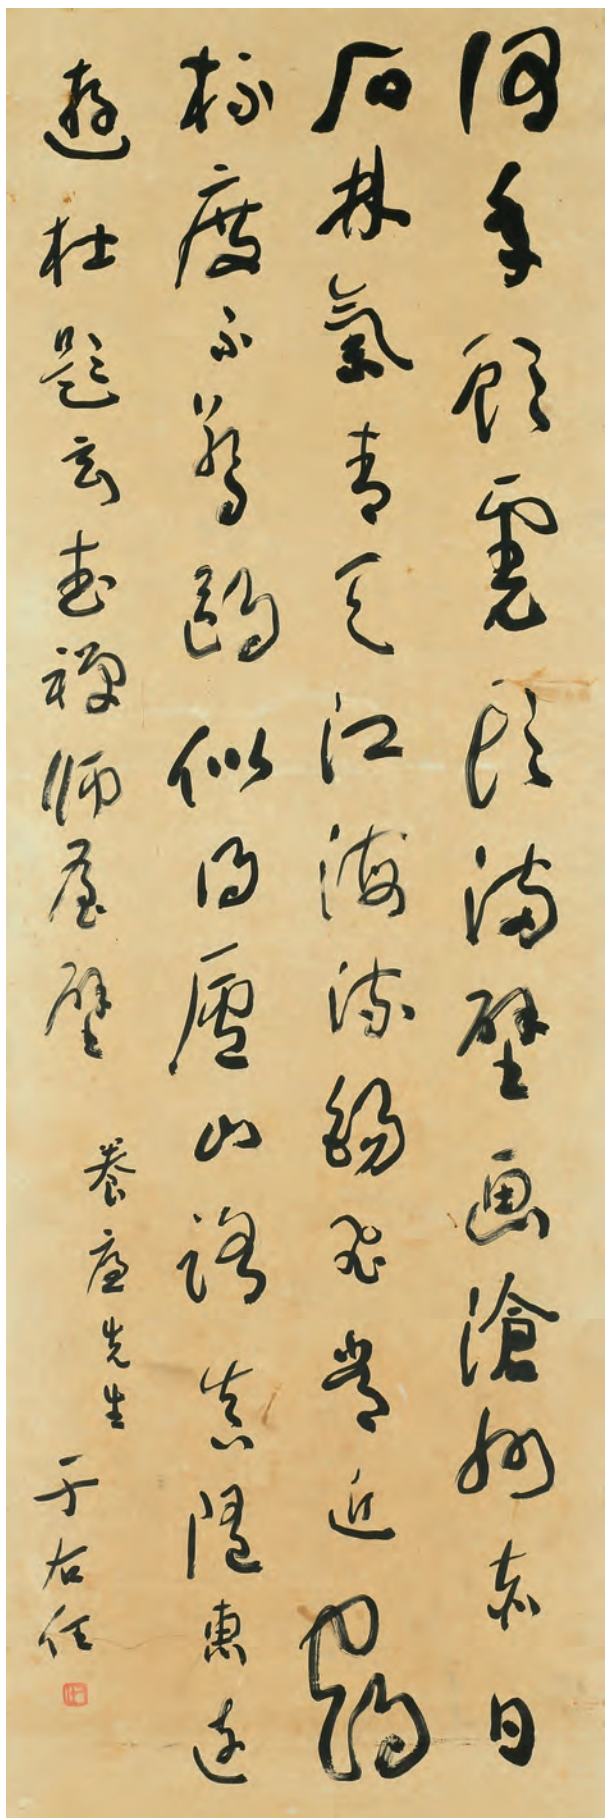 何年顧虎頭滿壁画滄州赤日
石林氣青天江海流錫飛常近鶴
杯度不驚鷗似得廬山路真隨惠遠
遊杜題玄武禪師屋壁
養廬先生
于右任